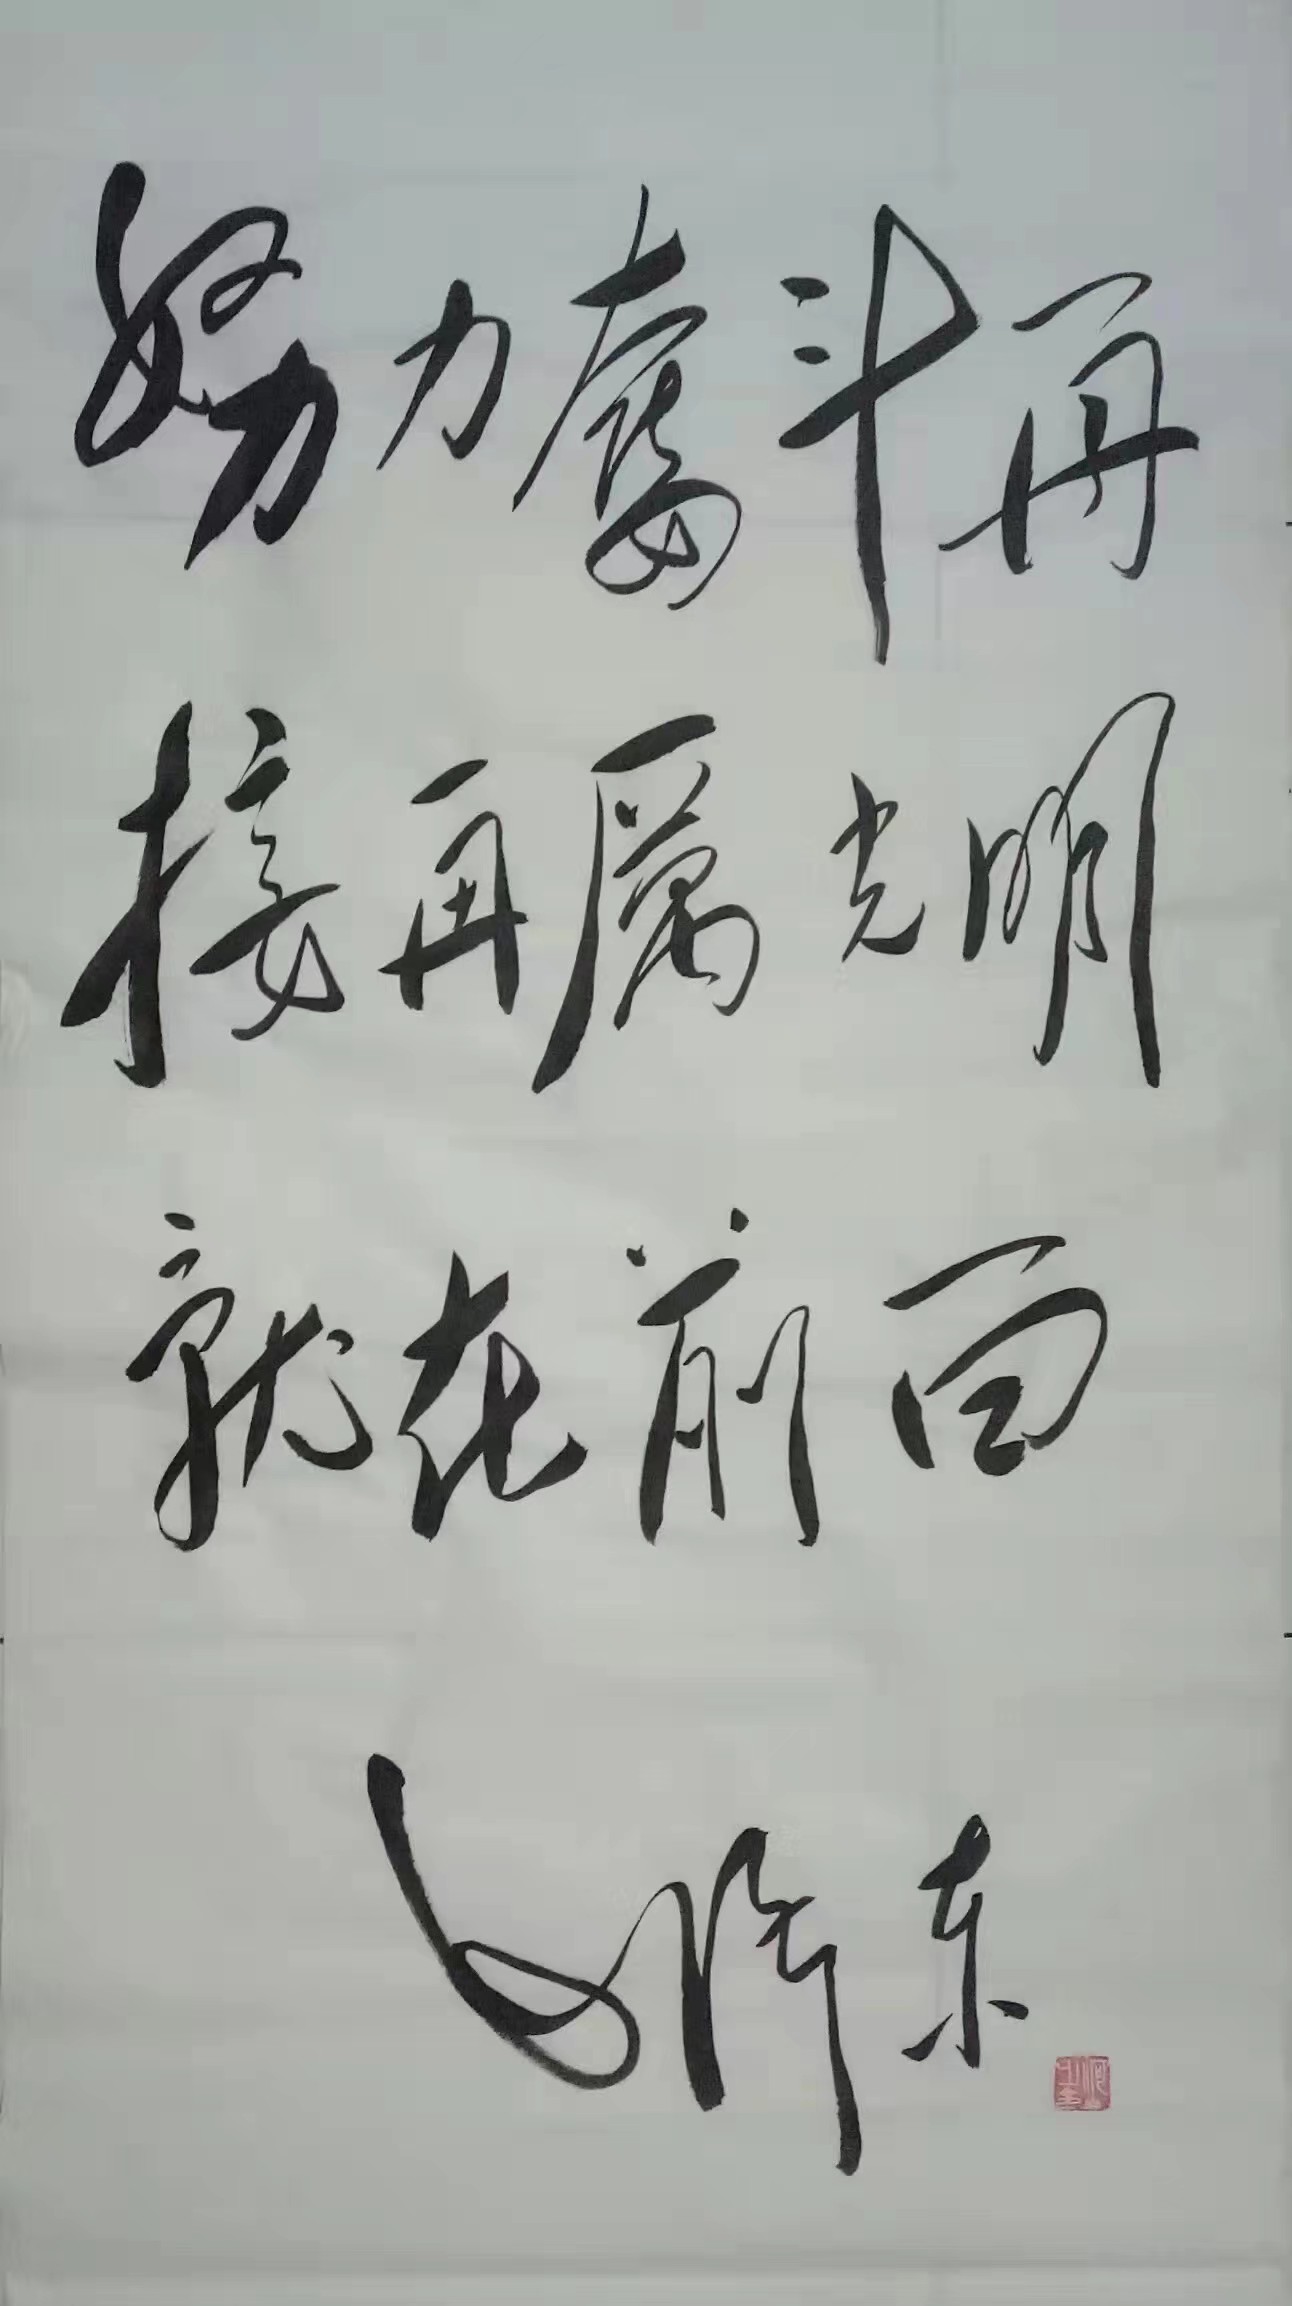 努力奋斗再
接再厲光明
就在前面
毛泽东